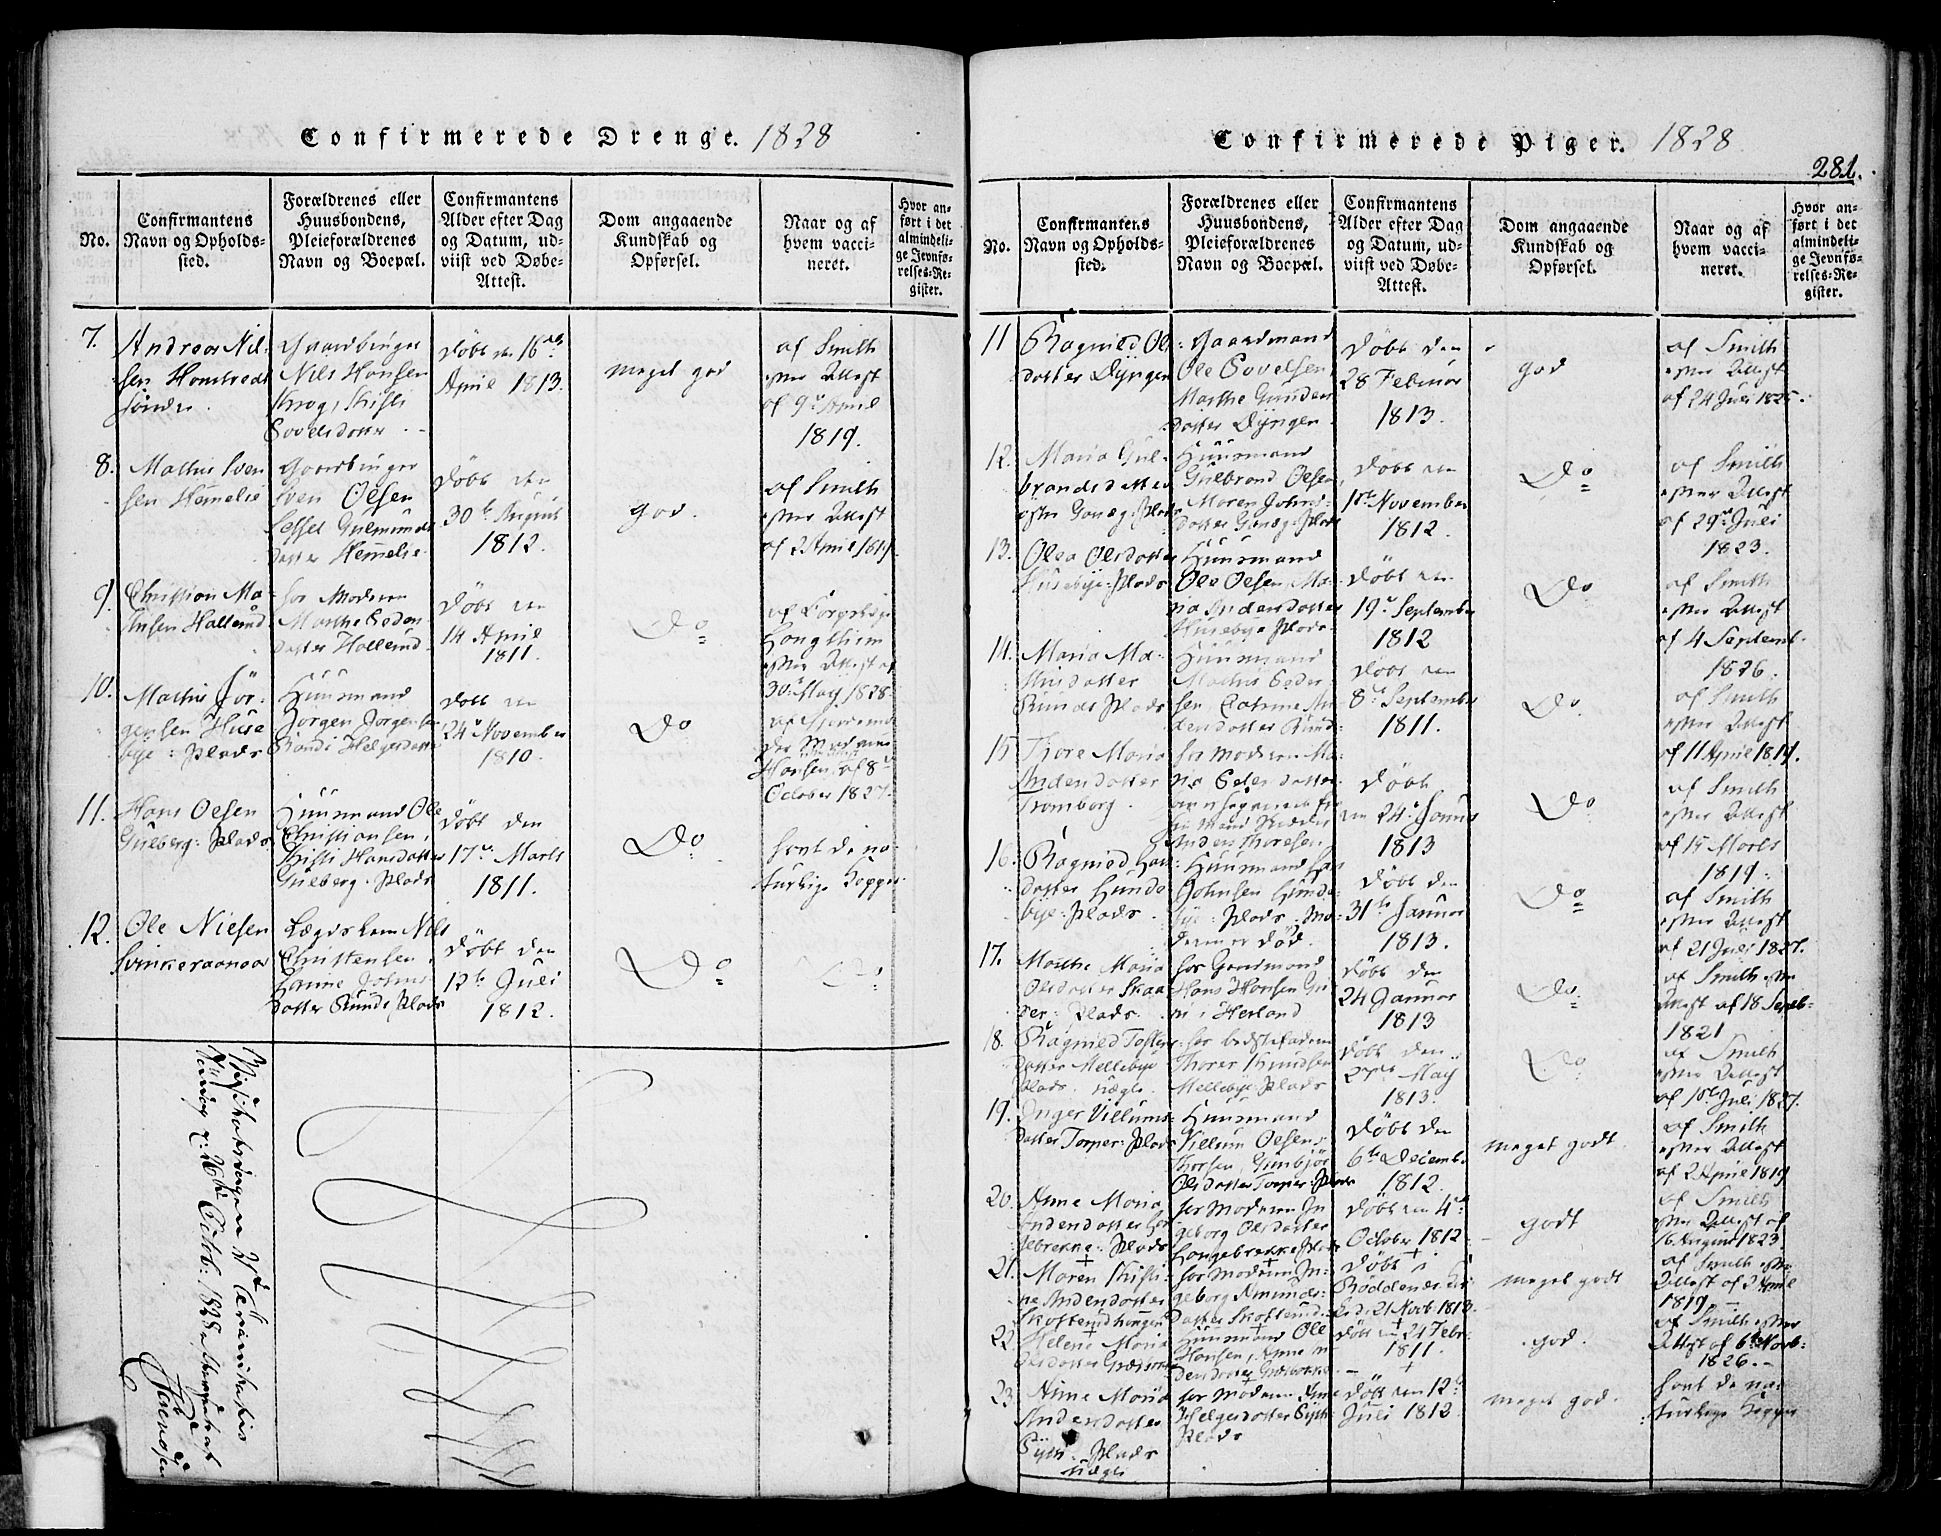 Confirmerede Drenge. 1828
No.
Confirmantens
Navn og Opholds-
sted.
Forældrenes eller
Huusbondens,
Pleieforældrenes
Navn og Boepæl.
Confirmantens
Alder efter Dag
og Datum, ud-
viist ved Døbe-
Attest.
Dom angaaende
Kundskab og
Opførsel.
Naar og af
hvem vacci-
neret.
Hvor an-
ført i det
almindeli-
ge Jevnfø-
relses-Re-
gister.
7.
Andreas Nil-
sen Homstvedt
søndre.
Gaardbruger
Nils Hansen
Krog, Kisti
Sovelsdatter
døbt den 16de
April 1813.
meget god
af Smith
efter Attest
af 9de April
1819.
8.
Mathis Sven
sen Hemelie
Gaardbruger
Sven Olsen
Sessel Gulmunds
datter Hemelie.
døbt den
30te August
1812.
god.
af Smith
efter Attest
af 2 April 1819.
9.
Christian Ma-
thisen Hallerud
for Moderen
Marthe Peders
datter Hallerud
døbt den
14 April
1811.
Do
af
Langtheim
efter Attest af
30te May 1828
10.
Mathis Jør-
gensen Huse
bye-Plads
Huusmand
Jørgen Jørgensen
Randi Helgesdatter
døbt den
24de November
1810.
Do
Hansen, af 8de
October 1827.
11.
Hans Olsen
Gulberg-Plads
Huusmand Ole
Christiansen,
Kisti Hansdatter
Gulberg-Plads
døbt den
17de Marts
1811.
Do.
havt de na-
turlige Kopper
12.
Ole Nielsen
Lægdslem Nils
Christensen,
Johns
datter Runds Plads
døbt den
12te Juli
1812.
Do
Do
26de Octob: 1828
Confirmerede Piger. 1828.
281.
No.
Confirmantens
Navn og Opholds-
sted.
Forældrenes eller
Huusbondens,
Pleieforældrenes
Navn og Boepæl.
Confirmantens
Alder efter Dag
og Datum, ud-
viist ved Døbe-
Attest.
Dom angaaende
Kundskab og
Opførsel.
Naar og af
hvem vacci-
neret.
Hvor an-
ført i det
almindeli-
ge Jevnfø-
relses-Re-
gister.
11
Ragnild Ols-
datter Dyngen
Gaardmand
Ole Sovelsen,
Marthe Gunders
datter Dyngen.
døbt den
28 Februar
1813.
god
af Smith
efter Attest
af 24 Juli 1825.
12.
Maria Gul-
brandsdatter
Huusmand
Gulbrand Olsen,
Maren Johns-
datter
døbt den
November
1812.
Do
af Smith
efter Attest
af 29de Juli
1823.
13.
Olea Olsdatter
Husebye-Plads
Huusmand
Ole Olsen, Ma-
ria Andersdatter
Husebye Plads
døbt den
19de September
1812
Do
af Smith
efter Attest
af 4 Septemb.
1826.
14.
Maria Ma-
thisdatter
Runds Plads
Huusmand
Mathis Peder-
sen, Cathrine An-
dersdatter Rund-
døbt den
8de September
1811.
Do
af Smith
efter Attest
af 11 April 1819.
15
Thore Maria
Andersdatter
Tromborg.
for Moderen Ma-
ria Pedersdatter
Anders Thoresen
døbt
den 24de Januar
1813
Do
af Smith
efter Attest
af 15 Marts
1819.
16.
Ragnild Hans
datter Hunde
bye-Plads.
Huusmand Hans
Johnsen Hunde-
bye-Plads. Mo-
deren er død.
døbt den
31te Januar
1813.
Do
af Smith
efter Attest
af 21 Juli 1827.
17.
Marthe Maria
Olsdatter Skaa-
der-Plads.
for Gaardmand
Hans Hansen
i Herland
døbt den
24 Januar
1813
Do.
af Smith efter
Attest af 18 Septb-
1821
18.
Ragnild Tosten-
datter Mellebye
Plads. uægte.
for bedstefaderen
Thorer Knudsen
Mellebye-Plads
døbt den
27de May
1813.
Do
af Smith
efter Attest
af 10de Juli 1827.
19.
Inger Villums-
datter Torper-Plads
Huusmand
Villum Olsen,
Gunbjør
Olsdatter Torper-Plads
døbt den
6te Decemb.
1812.
meget godt
af Smith
efter Attest
af 2 April 1819
20.
Anne Maria
Andersdatter Lan-
gebrekke-Plads
for Moderen In-
geborg Olsdatter
Langebrekke Plads
døbt den 4de
October 1812
godt
af Smith
efter Attest af
16 August 1823
21.
Maren Kisti-
ne Andersdatter
Skotterudhaugen
for Moderen In-
geborg Amunds-
datter Skotterud-
døbt i
Røddenæs Kir-
ke d. 21 Novb. 1813.
meget godt
af Smith efter
Attest af 2 April
1819.
22.
Helene Maria
Olsdatter
Huusmand Ole
Hansen, Anne
døbt den 21 Febr.
1811.
god.
af Smith efter
Attest af 6te Novb:
1826.
23
Anne Maria
Andersdatter
Plads
uægte
for Moderen Anne
Helgesdatter
Plads
døbt den 12te
Juli 1812
meget god.
havt de na-
turlige Kopper